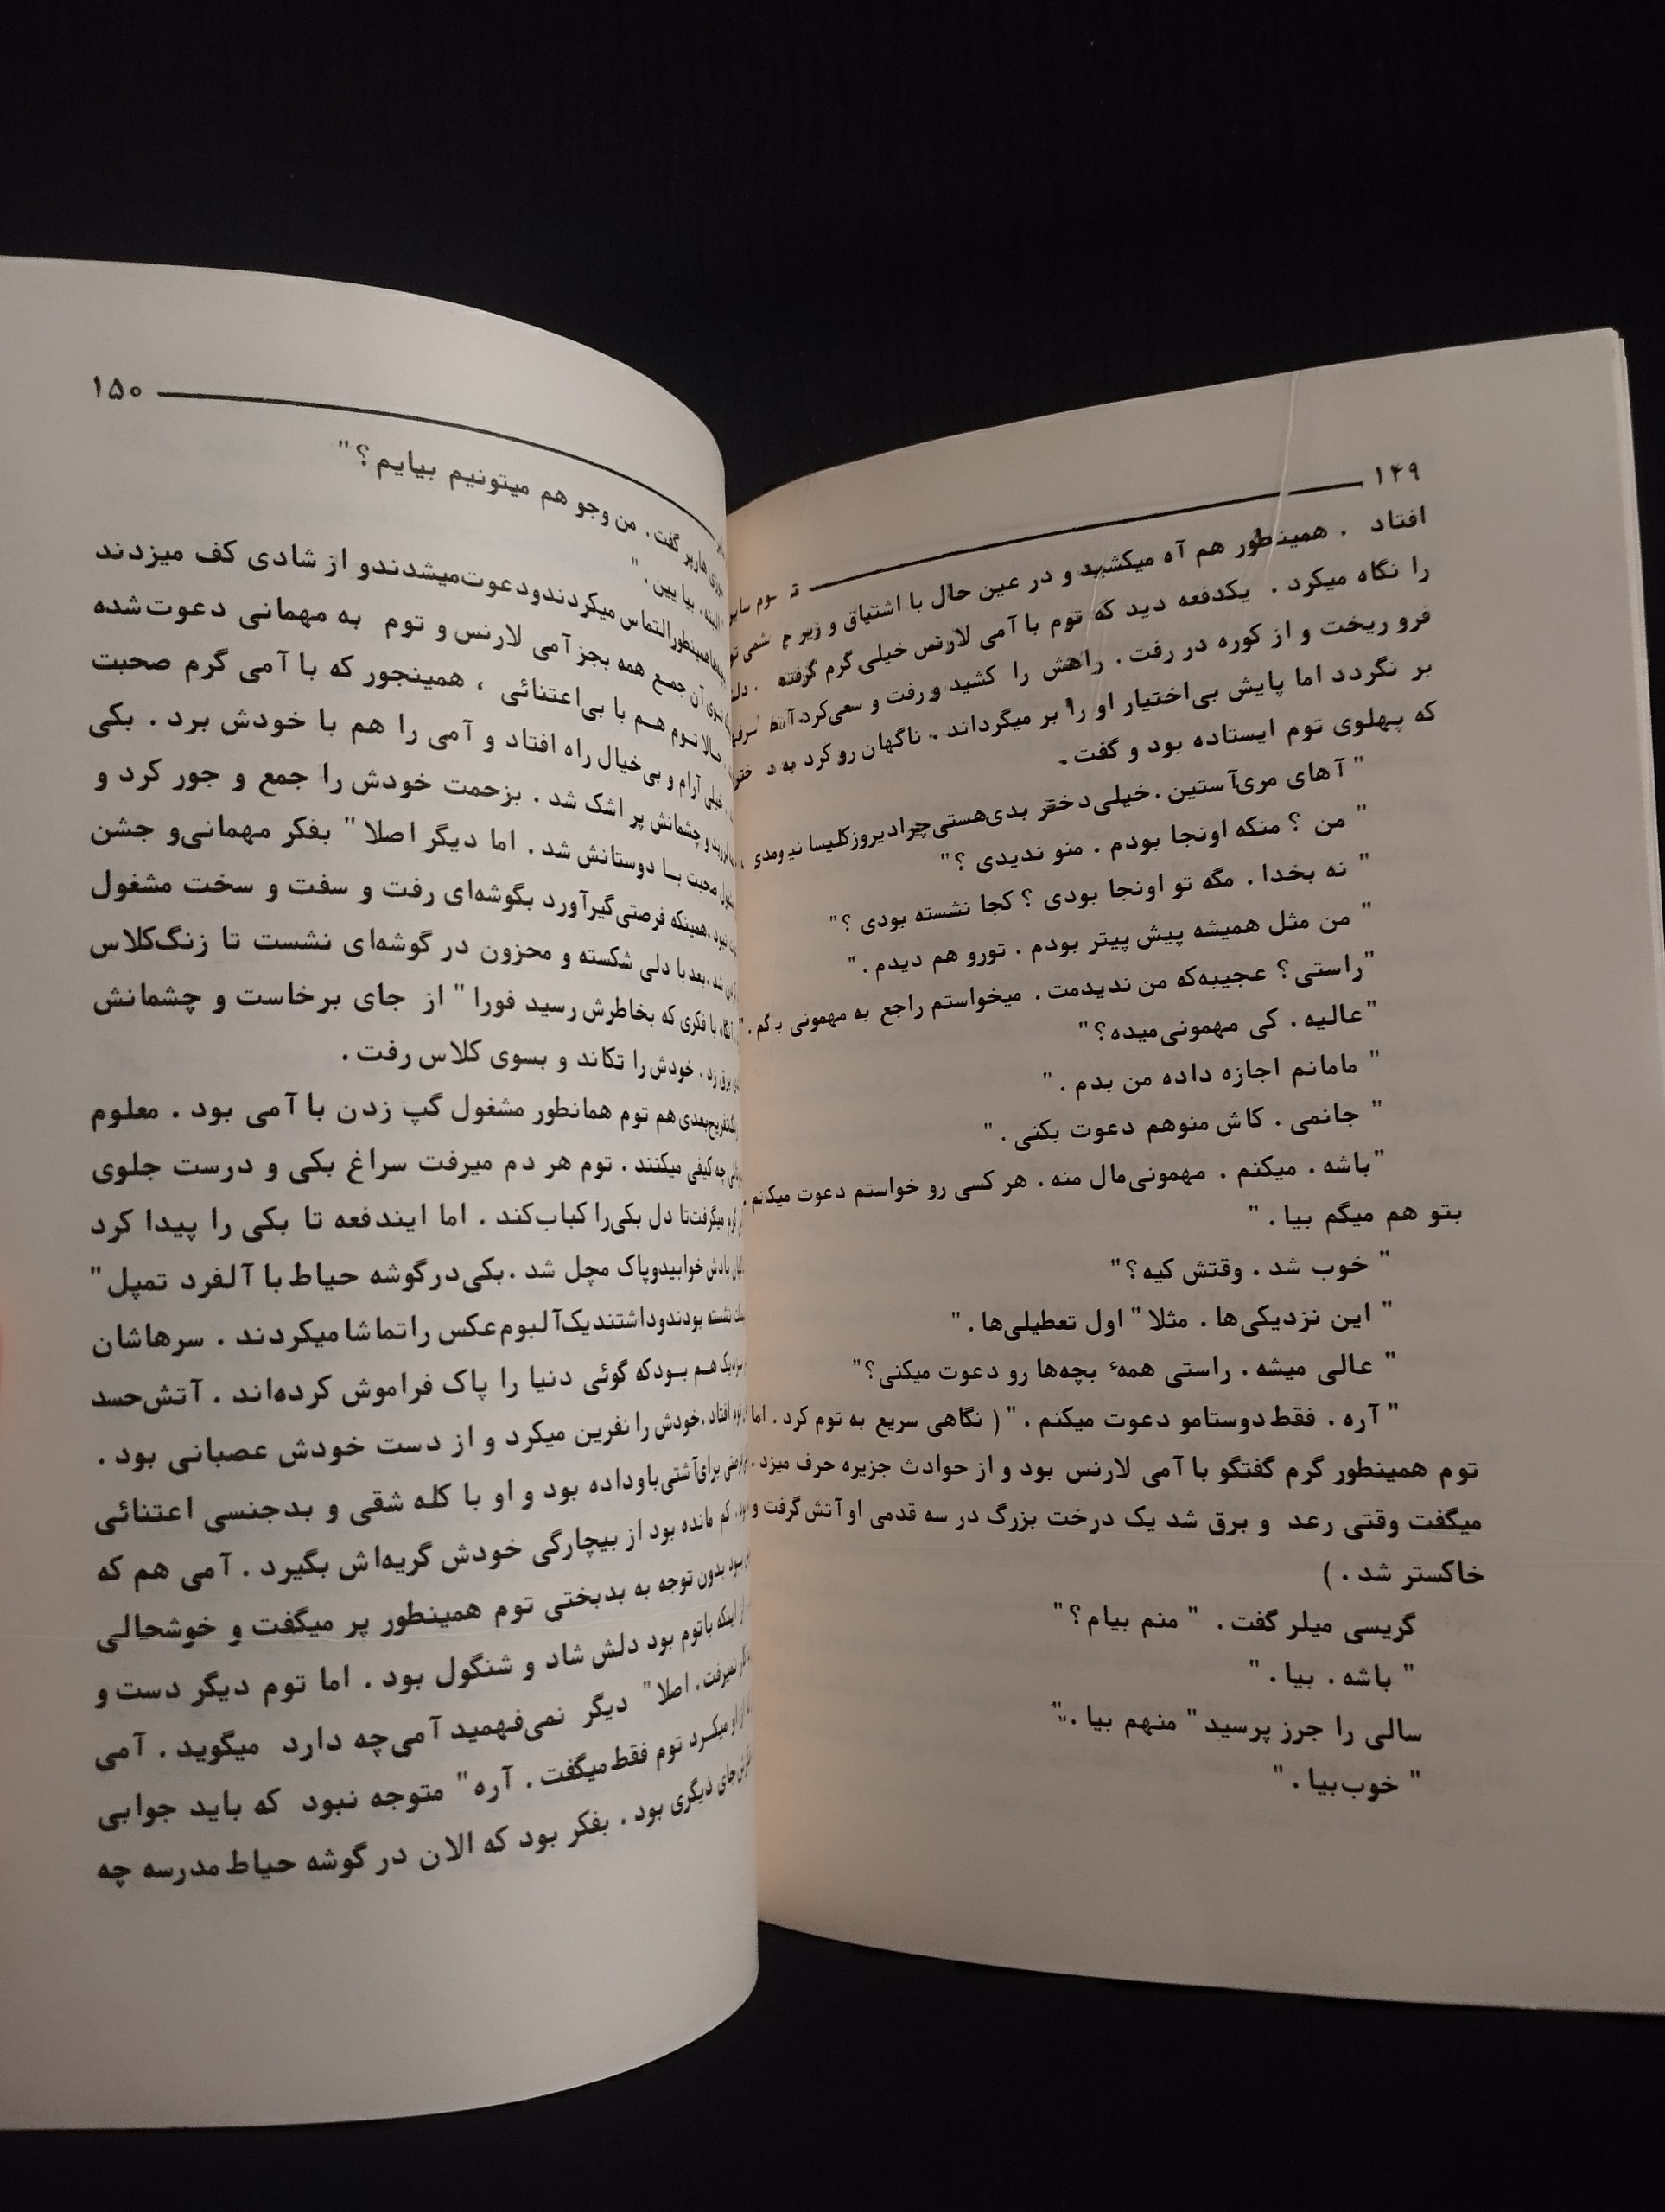 ۱۴۹
افتاد . همینطور هم آه میکشید و در عین حال با اشتیاق و زیر
را نگاه میکرد . یکدفعه دید که توم با آمی لارنس خیلی گرم گرفته .
فرو ریخت و از کوره در رفت . راهش را کشید و رفت و سعی‌کرد
بر نگردد اما پایش بی‌اختیار او را بر میگرداند . ناگهان رو کرد به
که پهلوی توم ایستاده بود و گفت .
" آهای مری‌آستین . خیلی‌دختر بدی‌هستی‌چرادیروزکلیسا نیومدی
" من ؟ منکه اونجا بودم . منو ندیدی ؟ "
" نه بخدا . مگه تو اونجا بودی ؟ کجا نشسته بودی ؟ "
" من مثل همیشه پیش پیتر بودم . تورو هم دیدم . "
"راستی ؟ عجیبه‌که من ندیدمت . میخواستم راجع به مهمونی بگم . "
"عالیه . کی مهمونی‌میده ؟ "
" مامانم اجازه داده من بدم . "
" جانمی . کاش منوهم دعوت بکنی . "
"باشه . میکنم . مهمونی‌مال منه . هر کسی رو خواستم دعوت میکنم .
بتو هم میگم بیا . "
" خوب شد . وقتش کیه ؟ "
" این نزدیکی‌ها . مثلا " اول تعطیلی‌ها . "
" عالی میشه . راستی همهٔ بچه‌ها رو دعوت میکنی ؟ "
" آره . فقط دوستامو دعوت میکنم . " ( نگاهی سریع به توم کرد . اما
توم همینطور گرم گفتگو با آمی لارنس بود و از حوادث جزیره حرف میزد .
میگفت وقتی رعد و برق شد یک درخت بزرگ در سه قدمی او آتش گرفت و
خاکستر شد . )
گریسی میلر گفت . " منم بیام ؟ "
" باشه . بیا . "
سالی را جرز پرسید " منهم بیا . "
" خوب‌بیا . "
۱۵۰
هارپر گفت . من وجو هم میتونیم بیایم ؟ "
بیا یین . "
همینطورالتماس میکردندودعوت‌میشدندو از شادی کف میزدند
آن جمع همه بجز آمی لارنس و توم به مهمانی دعوت شده
حالا توم هم با بی‌اعتنائی ، همینجور که با آمی گرم صحبت
خیلی آرام و بی‌خیال راه افتاد و آمی را هم با خودش برد . بکی
و چشمانش پر اشک شد . بزحمت خودش را جمع و جور کرد و
صحبت با دوستانش شد . اما دیگر اصلا " بفکر مهمانی‌و جشن
نبود . همینکه فرصتی‌گیرآورد بگوشه‌ای رفت و سفت و سخت مشغول
شد . بعد با دلی شکسته و محزون در گوشه‌ای نشست تا زنگ‌کلاس
با فکری که بخاطرش رسید فورا " از جای برخاست و چشمانش
برق زد . خودش را تکاند و بسوی کلاس رفت .
بعدی هم توم همانطور مشغول گپ زدن با آمی بود . معلوم
چه کیفی میکنند . توم هر دم میرفت سراغ بکی و درست جلوی
گرم میگرفت‌تا دل بکی‌را کباب‌کند . اما ایندفعه تا بکی را پیدا کرد
بادش خوابیدوپاک مچل شد . بکی‌درگوشه حیاط با آلفرد تمپل "
نشسته بودندوداشتندیک‌آلبوم‌عکس راتماشا میکردند . سرهاشان
نزدیک هم بودکه گوئی دنیا را پاک فراموش کرده‌اند . آتش‌حسد
توم افتاد . خودش را نفرین میکرد و از دست خودش عصبانی بود .
برای‌آشتی‌باوداده بود و او با کله شقی و بدجنسی اعتنائی
کم مانده بود از بیچارگی خودش گریه‌اش بگیرد . آمی هم که
بدون توجه به بدبختی توم همینطور پر میگفت و خوشحالی
اینکه باتوم بود دلش شاد و شنگول بود . اما توم دیگر دست و
نمیرفت . اصلا " دیگر نمی‌فهمید آمی‌چه دارد میگوید . آمی
از او میکرد توم فقط میگفت . آره " متوجه نبود که باید جوابی
جای دیگری بود . بفکر بود که الان در گوشه حیاط مدرسه چه